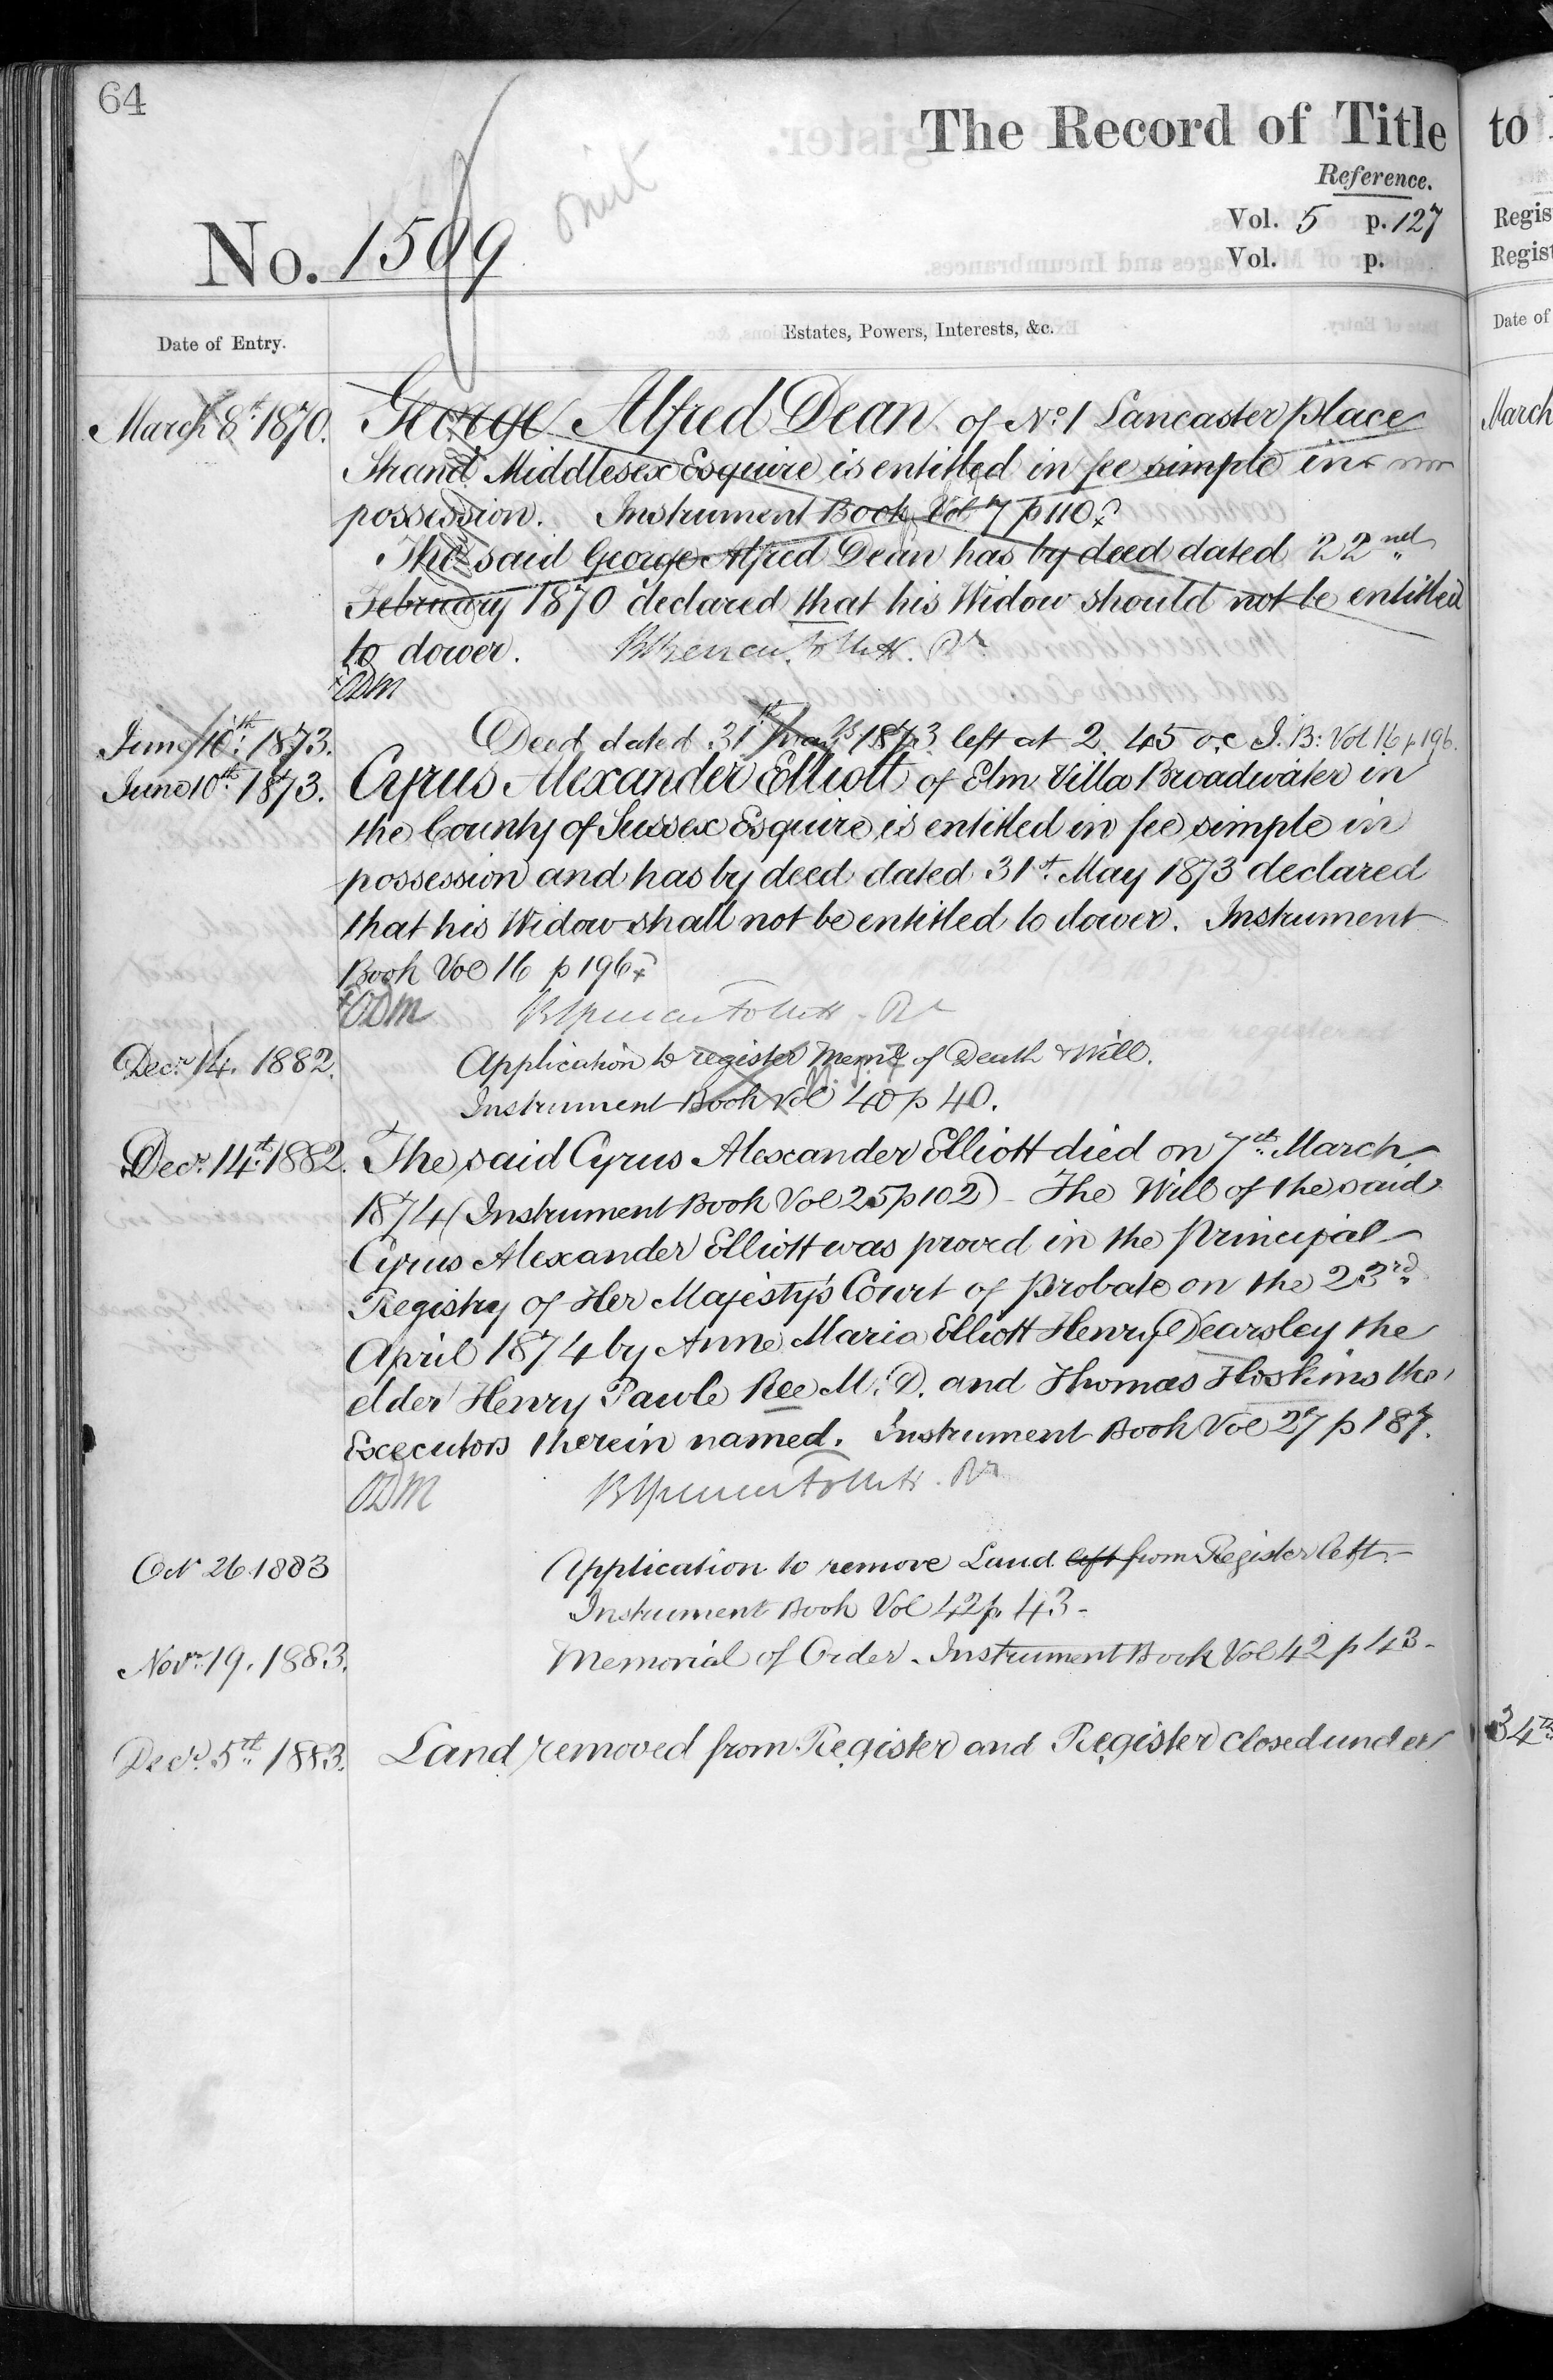 64
omit
The Record of Title
Reference.
Vol. 5 p. 127
Vol. p.
No. 1509
Date of Entry.
Estates, Powers, Interests, &c.
March 8th 1870. George Alfred Dean of No. 1 Lancaster place
Strand Middlesex Esquire is entitled in fee simple in
possession. Instrument Book Vol 7 p 110
The said George Alfred Dean has by deed dated 22nd
February 1870 declared that his Widow should not be entitled
to dower.
ODM
June 10th 1873. Deed dated 31st May 1873 left at 2.45 oc I.B: Vol 16 p 196.
June 10th 1873. Cyrus Alexander Elliott of Elm Villa Broadwater in
the County of Sussex Esquire is entitled in fee simple in
possession and has by deed dated 31st May 1873 declared
that his Widow shall not be entitled to dower. Instrument
Book Vol 16 p 196
ODM
Decr 14. 1882. Application to register Meml of Death & Will.
Instrument Book Vol 40 p 40.
Decr 14th 1882. The said Cyrus Alexander Elliott died on 7th March
1874 (Instrument Book Vol 25 p 102) - The Will of the said
Cyrus Alexander Elliott was proved in the Principal
Registry of Her Majesty's Court of Probate on the 23rd
April 1874 by Anne Maria Elliott Henry Dearsley the
elder Henry Pawle Ree M.D. and Thomas Hoskins the
Executors therein named. Instrument Book Vol 27 p 187.
ODM
Oct 26 1883 Application to remove Land left from Register left -
Instrument Book Vol 42 p. 43 -
Novr 19. 1883. Memorial of Order - Instrument Book Vol 42 p 43 -
Decr 5th 1883. Land removed from Register and Register closed under
to
Regis
Regist
Date of
March
34th